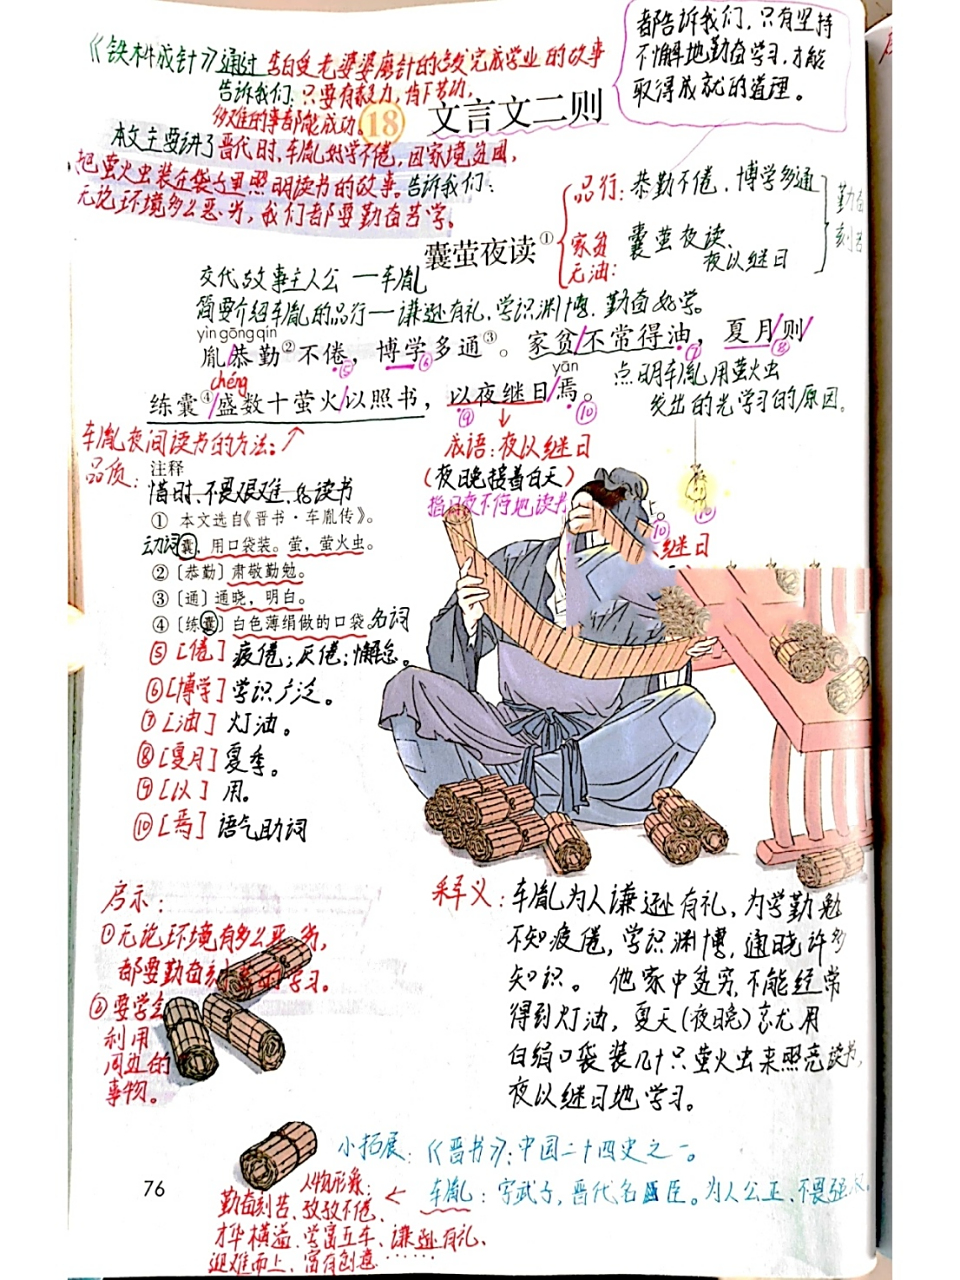 都告诉我们，只有坚持
不懈地勤奋学习，才能
取得成就的道理。
《铁杵成针》通过李白受老婆婆磨针的启发完成学业的故事
告诉我们：只要有毅力，肯下苦功，
多难的事都能成功。
18 文言文二则
本文主要讲了晋代时，车胤好学不倦，因家境贫困，
把萤火虫装在袋子里照明读书的故事。告诉我们：
无论环境多么恶劣，我们都要勤奋苦学。
囊萤夜读①
品行：恭勤不倦，博学多通
家贫
无油：
囊萤夜读、
夜以继日
勤奋
刻苦
交代故事主人公——车胤
简要介绍车胤的品行——谦逊有礼，学识渊博，勤奋好学。
yìn gōng qín
胤/恭勤②不倦，博学多通③。家贫/不常得油，夏月/则/
⑤ ⑥ ⑦ ⑧
chéng
yān
练囊④/盛数十萤火/以照书，以夜继日/焉。
⑨ ⑩
点明车胤用萤火虫
发出的光学习的原因。
车胤夜间读书的方法：
成语：夜以继日
（夜晚接着白天）
指日夜不停地读书
品质：
惜时、不畏艰难、好读书
继日
注释
① 本文选自《晋书·车胤传》。
动词 囊，用口袋装。萤，萤火虫。
② 〔恭勤〕肃敬勤勉。
③ 〔通〕通晓，明白。
④ 〔练囊〕白色薄绢做的口袋 名词
⑤ [倦] 疲倦；厌倦；懈怠。
⑥ [博学] 学识广泛。
⑦ [油] 灯油。
⑧ [夏月] 夏季。
⑨ [以] 用。
⑩ [焉] 语气助词
启示：
①无论环境有多么恶劣，
都要勤奋刻苦的学习。
②要学会
利用
周边的
事物。
释义：车胤为人谦逊有礼，为学勤勉
不知疲倦，学识渊博，通晓许多
知识。他家中贫穷，不能经常
得到灯油，夏天（夜晚）就用
白绢口袋装几十只萤火虫来照亮读书，
夜以继日地学习。
小拓展：《晋书》：中国二十四史之一。
车胤：字武子，晋代名臣。为人公正、不畏强权。
人物形象：
勤奋刻苦、孜孜不倦、
才华横溢、学富五车、谦逊有礼、
迎难而上、富有创意……
76